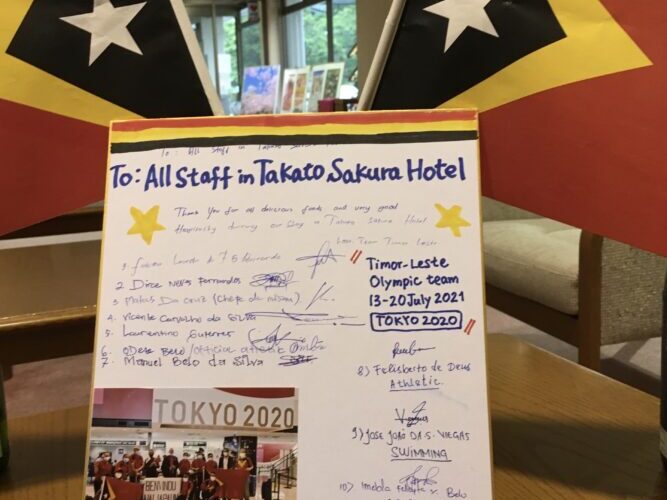 To: All Staff in Takato
To: All Staff in Takato Sakura Hotel
Thank You for all delicious foods and very good
Hospitality during our Stay in Takato Sakura Hotel.
from Team Timor Leste.
1.
2. Dirce Neves Fernandes
3 Mateus Da Cruz (Chefe de mission)
4. Vicente Carvalho da Silva
5. Laurentino Guterres
6. Odete Belo/official
7. Manuel Belo da Silva
Timor-Leste
Olympic team
13-20 July 2021
TOKYO 2020
8) Felisberto de Deus
Athletic.
9) JOSE JOÃO DA S. VIEGAS
SWIMMING
10) Imelda Belo
TOKYO 2020
BENVINDU